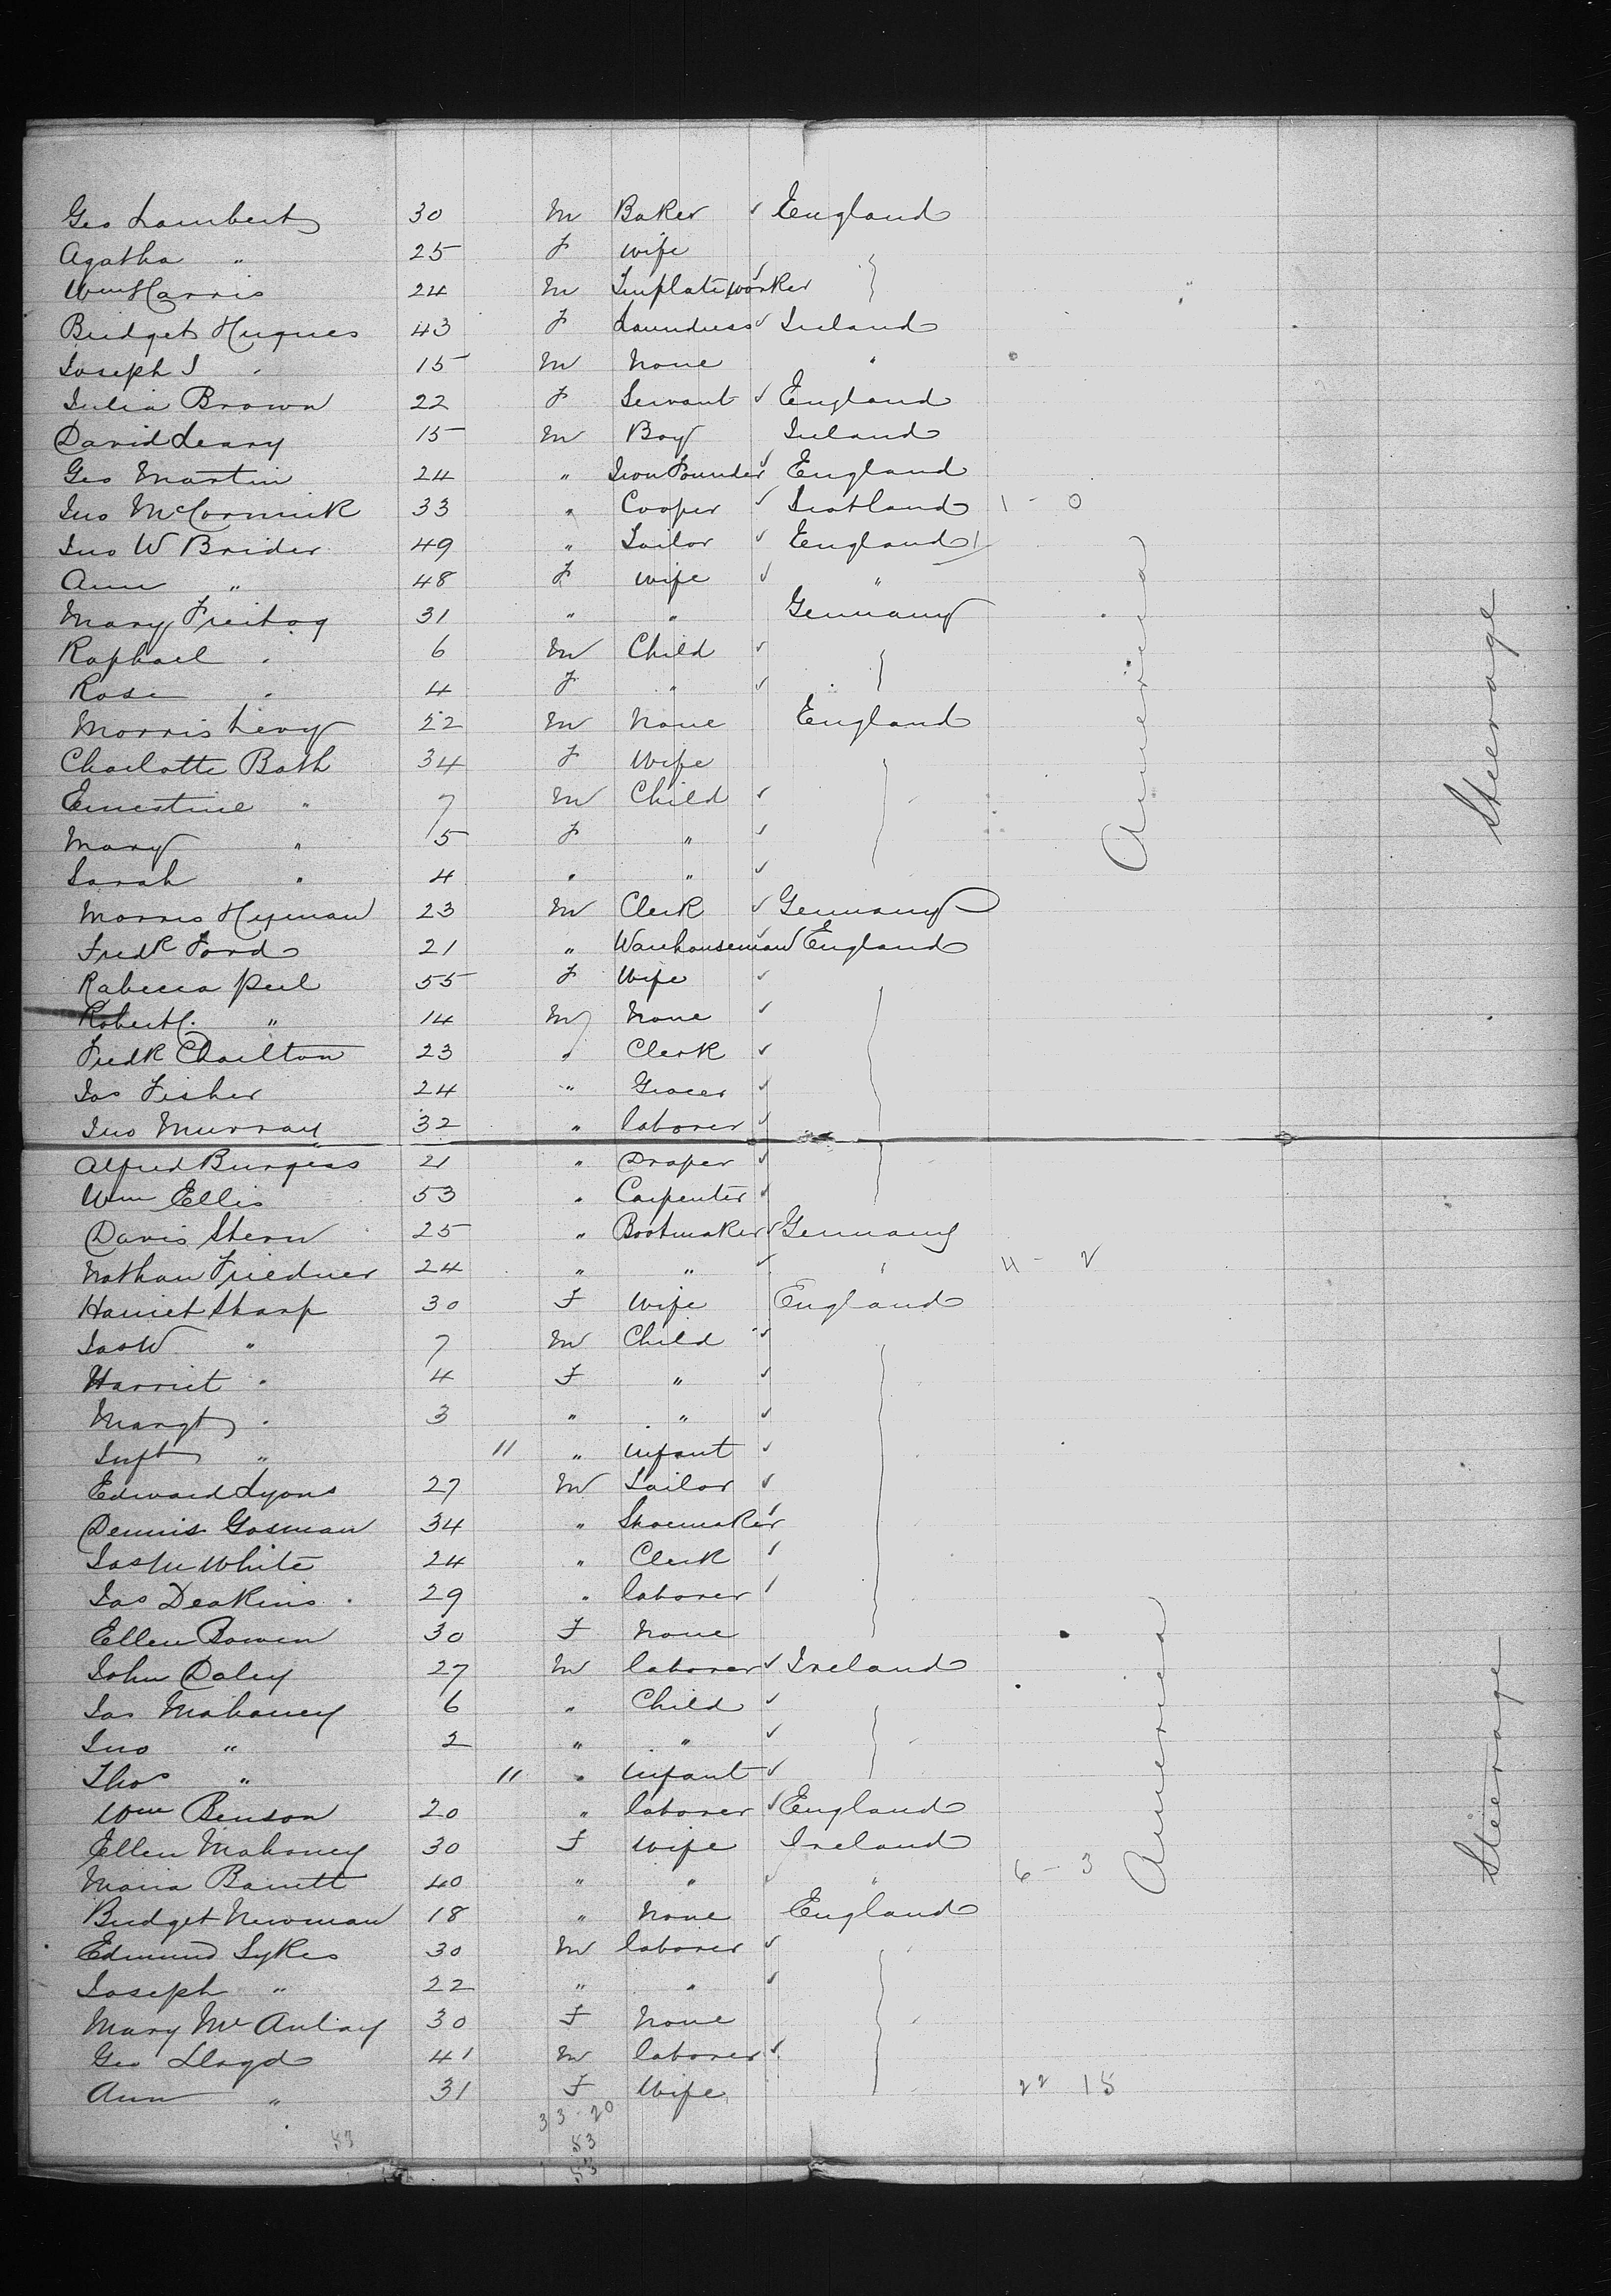 Geo Lambert 30 M Baker ✓ England
Agatha " 25 F Wife
Wm Harris 24 M Tinplateworker ✓ }
Bridget Hugues 43 F Laundress ✓ Ireland
Joseph J " 15 M None "
Julia Brown 22 F Servant ✓ England
David Leary 15 M Boy Ireland
Geo Martin 24 " Iron Founder ✓ England
Jno McCormick 33 " Cooper ✓ Scotland 1 - 0
Jno W Brider 49 " Tailor ✓ England 1/
Ann " 48 F Wife ✓ "
Mary Freitag 31 " " Germany
Raphael " 6 M Child ✓
Rose " 4 F " ✓ }
Morris Levy 52 M None England
Charlotte Bath 34 F Wife
Ernestine " 7 M Child ✓
Mary " 5 F " ✓ }
Sarah " 4 " " ✓
Morris Hyman 23 M Clerk ✓ Germany
Fredk Ford 21 " Warehouseman ✓ England
Rabecca Peel 55 F Wife ✓
Robert C. " 14 M None ✓
Fredk Charlton 23 " Clerk ✓
Jas Fisher 24 " Grocer ✓
Jno Murray 32 " laborer ✓
Alfred Burgess 21 " Draper ✓
Wm Ellis 53 " Carpenter ✓
Davis Stern 25 " Bootmaker ✓ Germany
Nathan Friedner 24 " " ✓ " 4 - 2
Harriet Sharp 30 F Wife England
Jas W " 7 M Child ✓
Harriet " 4 F " ✓
Margt " 3 " " ✓
Inft " 11 " Infant ✓
Edward Lyons 27 M Tailor ✓
Dennis Gosman 34 " Shoemaker ✓
Jas M White 24 " Clerk ✓
Jas Deakins 29 " laborer ✓
Ellen Bowen 30 F None
John Daley 27 M laborer ✓ Ireland
Jas Mahoney 6 " Child ✓
Jno " 2 " " ✓ }
Thos " 11 " Infant ✓
Wm Benson 20 " laborer ✓ England
Ellen Mahoney 30 F Wife Ireland
Maria Barrett 40 " " ✓ " 6 - 3
Bridget Newman 18 " None England
Edmund Sykes 30 M laborer ✓
Joseph " 22 " " ✓
Mary McAulay 30 F None
Geo Lloyd 41 M laborer ✓
Ann " 31 F Wife 22 15
33 - 20
53 53
53
America
Steerage
America
Steerage